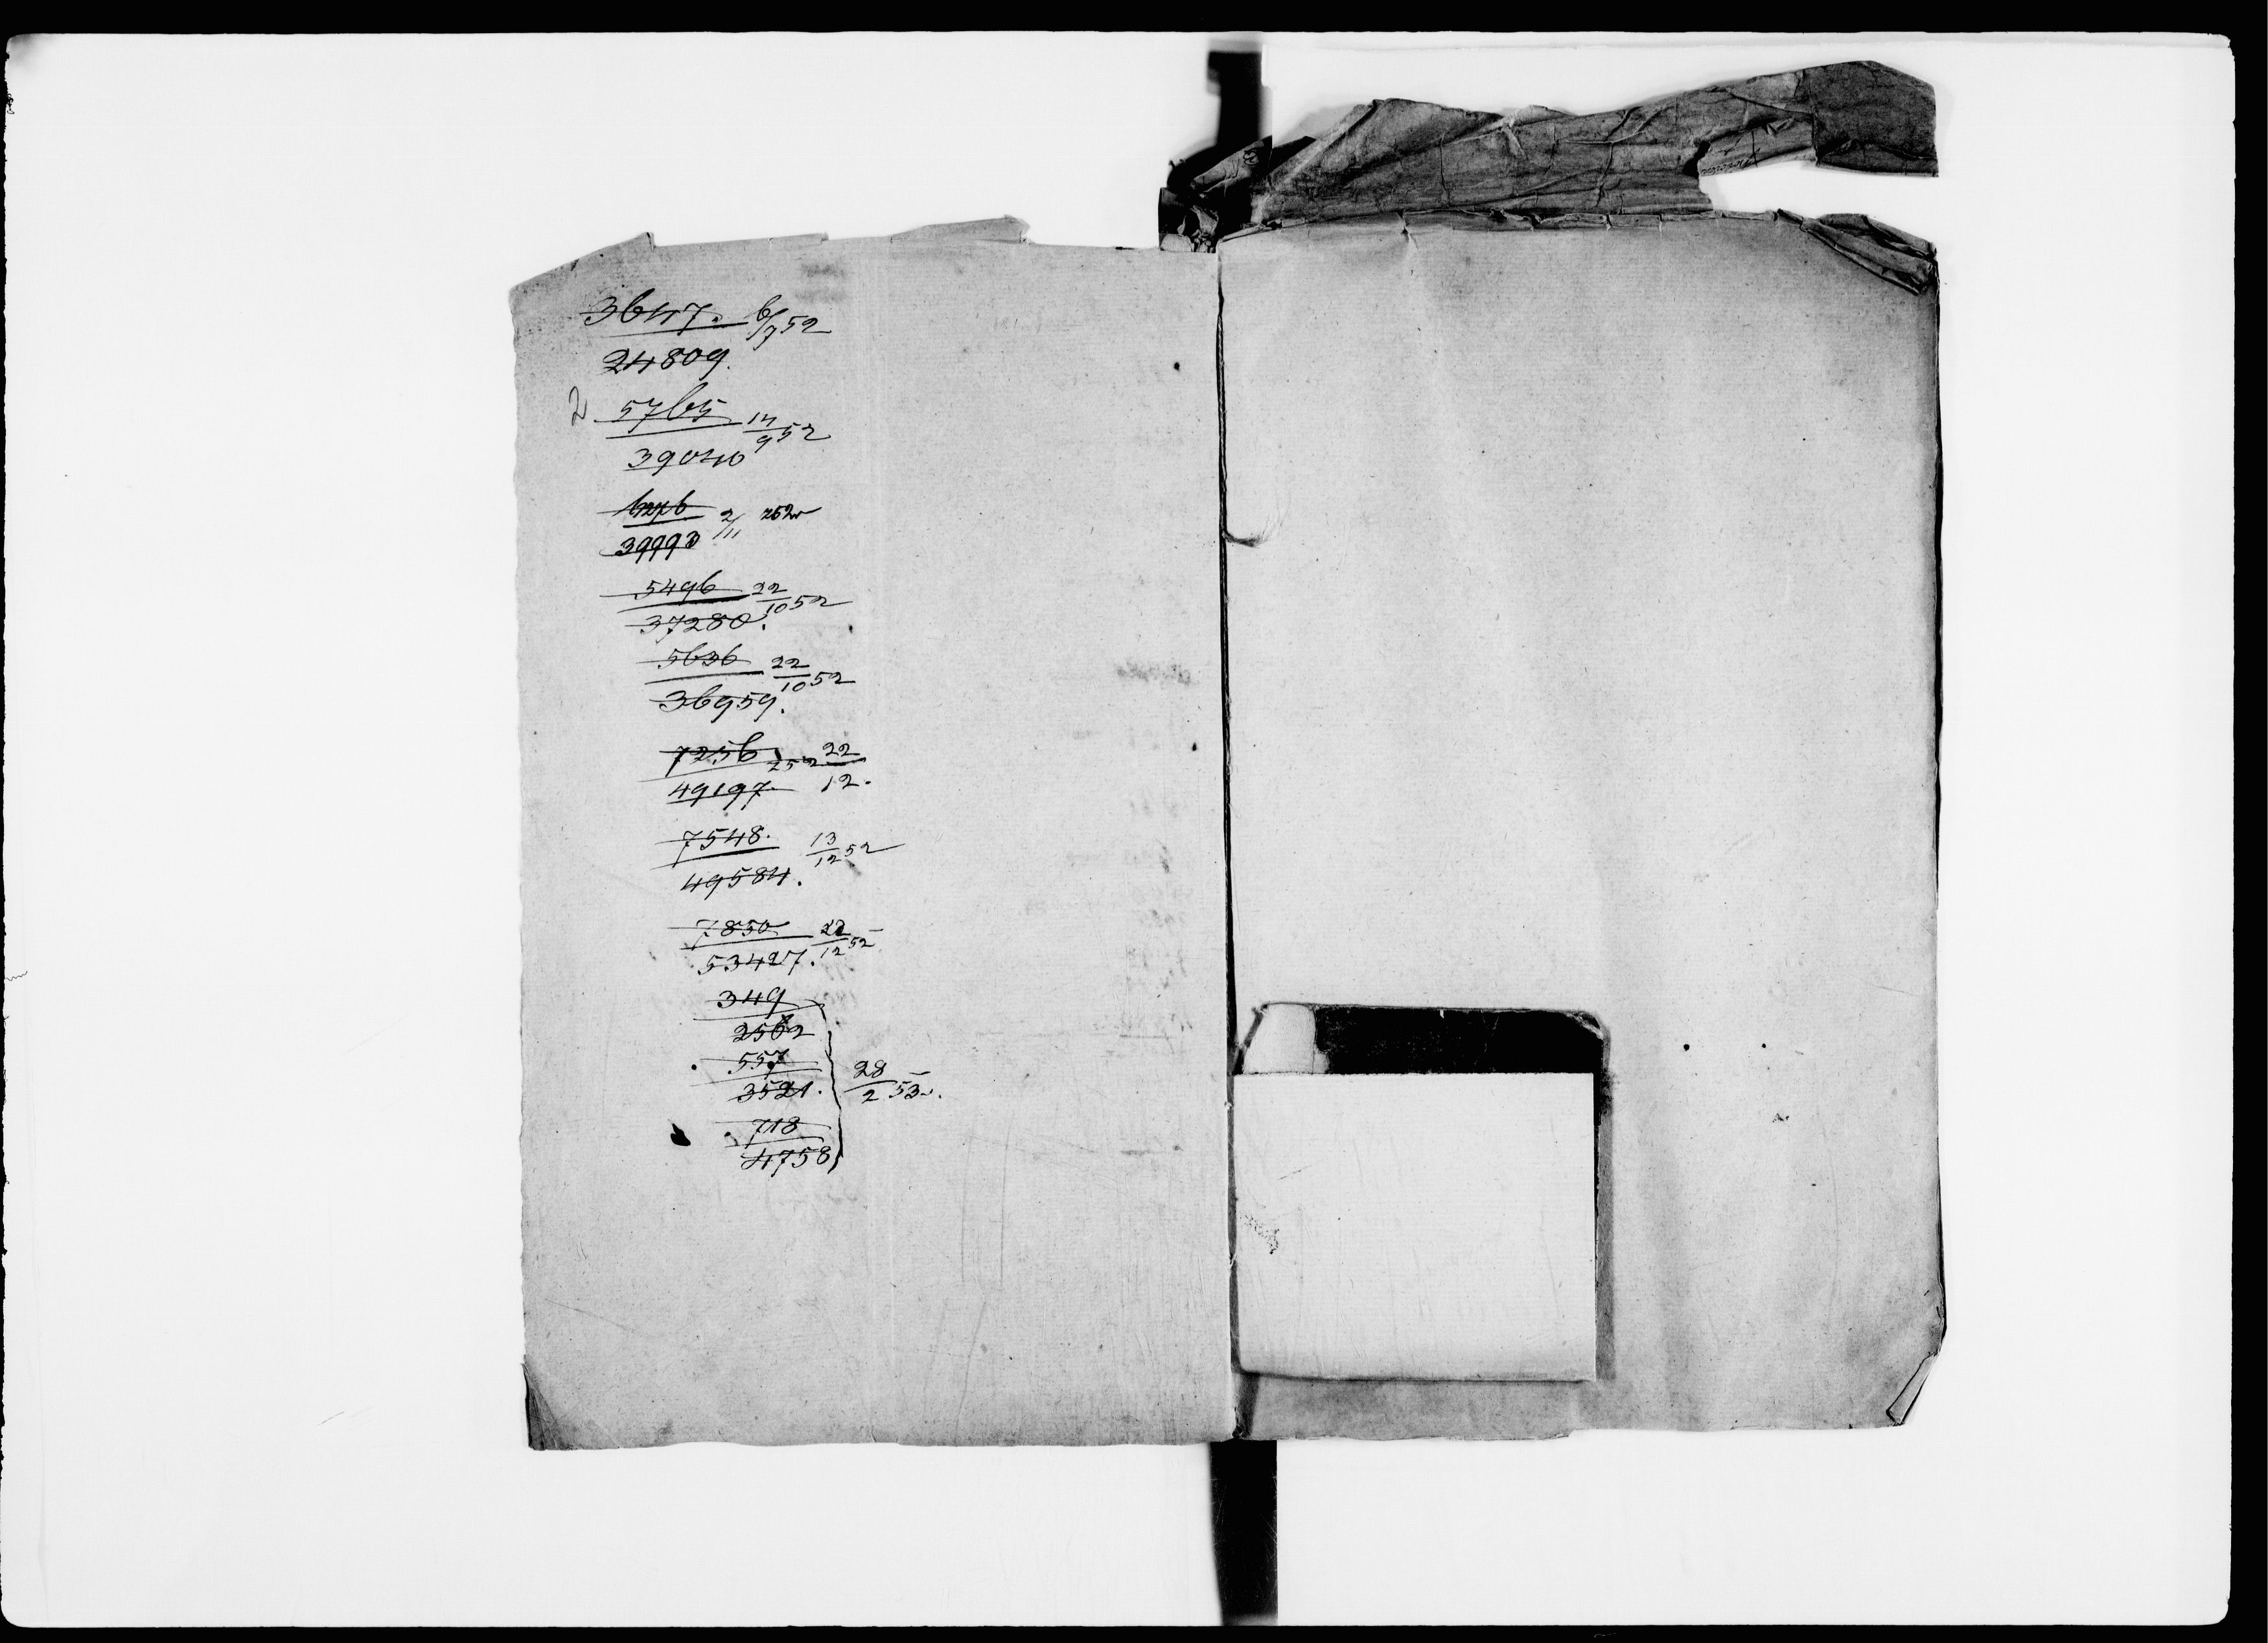 3647. 6/7 52
24809.
2 5765 14/9 52
39040
6276 2/11 252
39993
5496 22/10 52
37280.
5636 22/10 52
36959.
7256 252 22/12.
49197
7548. 13/12 52
49584.
7850 22/12 52
53427.
349
2562
557
3521. 28/2 53.
718
4758